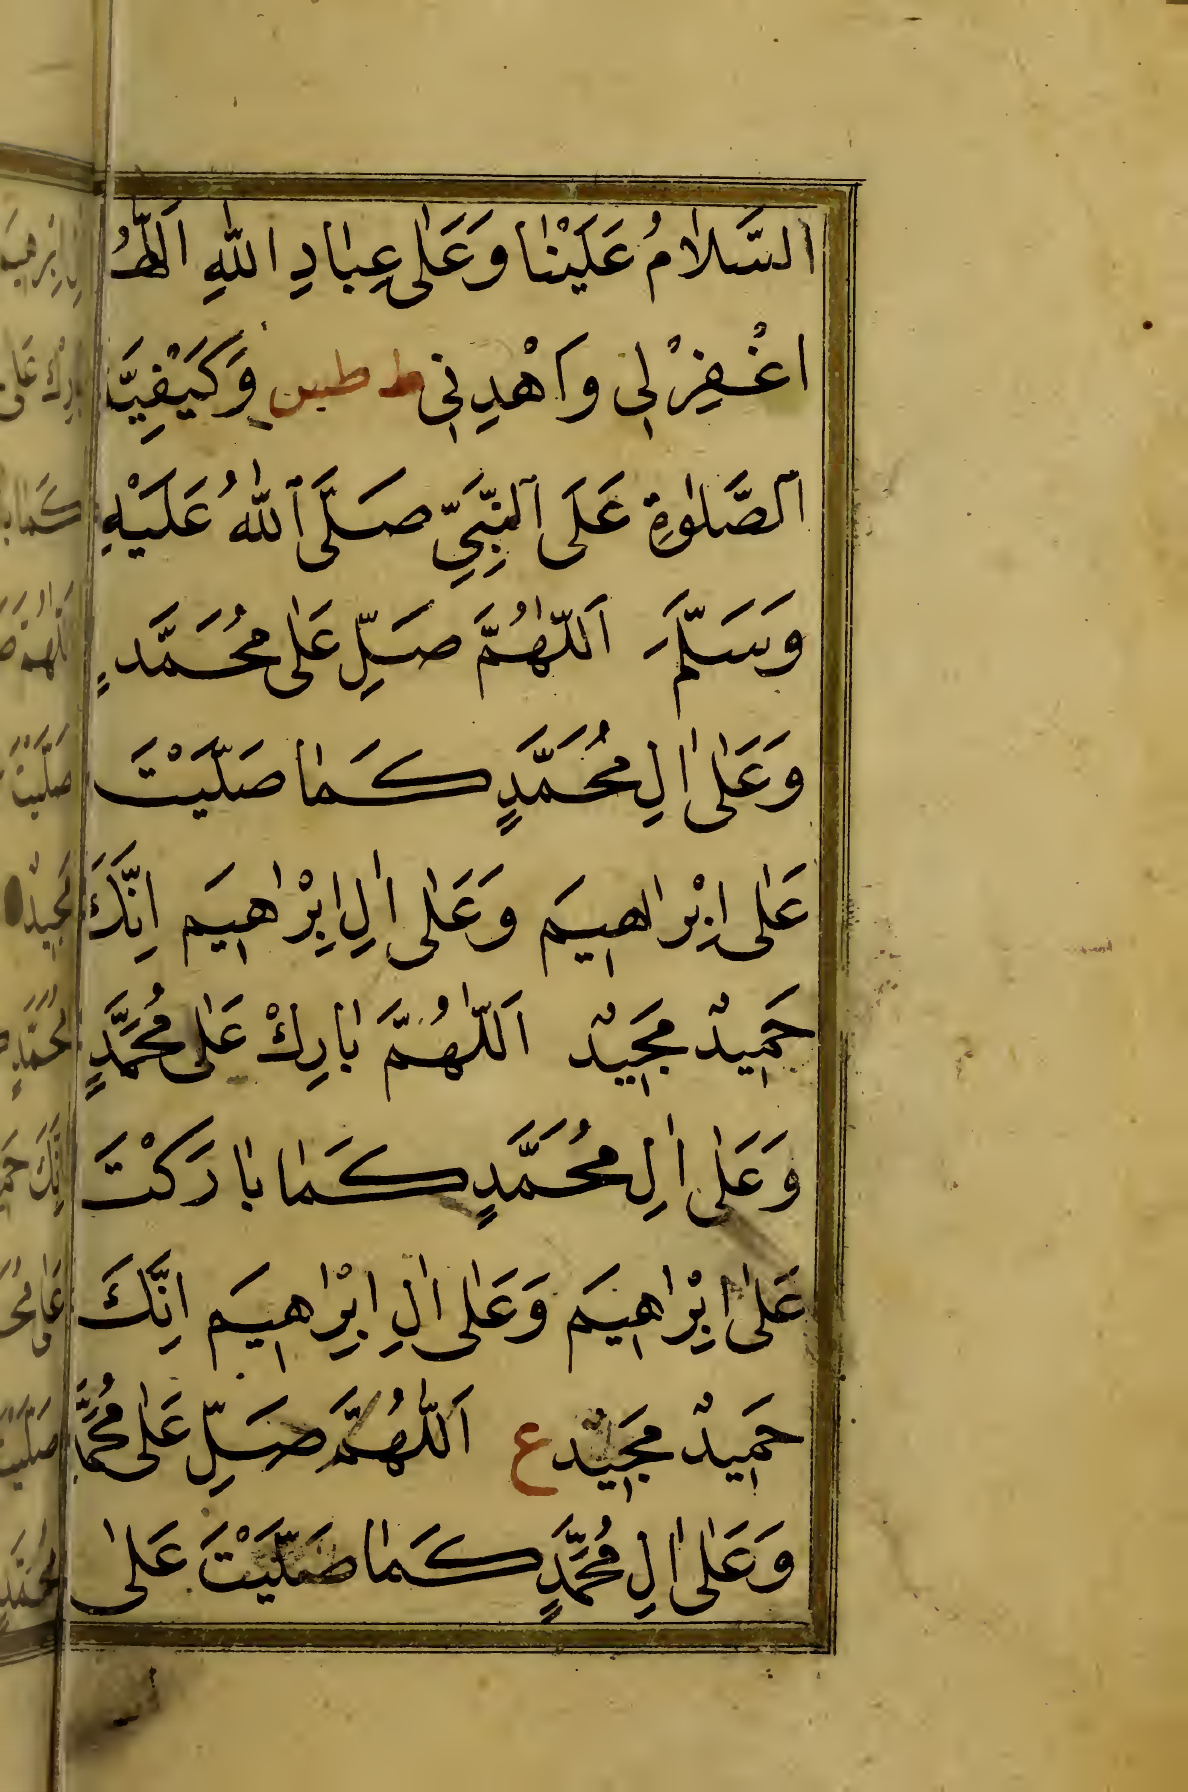 السَّلَامُ عَلَيْنَا وَعَلٰى عِبَادِ اللّٰهِ اَللّٰهُ
اغْفِرْ لِي وَاهْدِنِي ط طس وَكَيْفِيَّة
الصَّلٰوةِ عَلَى النَّبِيِّ صَلَّى اللّٰهُ عَلَيْهِ
وَسَلَّمَ اَللّٰهُمَّ صَلِّ عَلٰى مُحَمَّدٍ
وَعَلٰى اٰلِ مُحَمَّدٍ كَمَا صَلَّيْتَ
عَلٰى اِبْرَاهِيمَ وَعَلٰى اٰلِ اِبْرٰهِيمَ اِنَّكَ
حَمِيدٌ مَجِيدٌ اَللّٰهُمَّ بَارِكْ عَلٰى مُحَمَّدٍ
وَعَلٰى اٰلِ مُحَمَّدٍ كَمَا بَارَكْتَ
عَلٰى اِبْرٰهِيمَ وَعَلٰى اٰلِ اِبْرٰهِيمَ اِنَّكَ
حَمِيدٌ مَجِيدٌ ع اَللّٰهُمَّ صَلِّ عَلٰى مُحَمَّد
وَعَلٰى اٰلِ مُحَمَّدٍ كَمَا صَلَّيْتَ عَلٰى